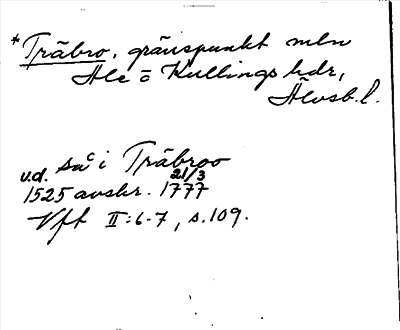 *Träbro, gränspunkt mln
Ale o Kullings hdr,
Älvsb. l.
v.d. sac i Träbroo
21/3
1525 avskr. 1777
Vft II:6-7, s.109.